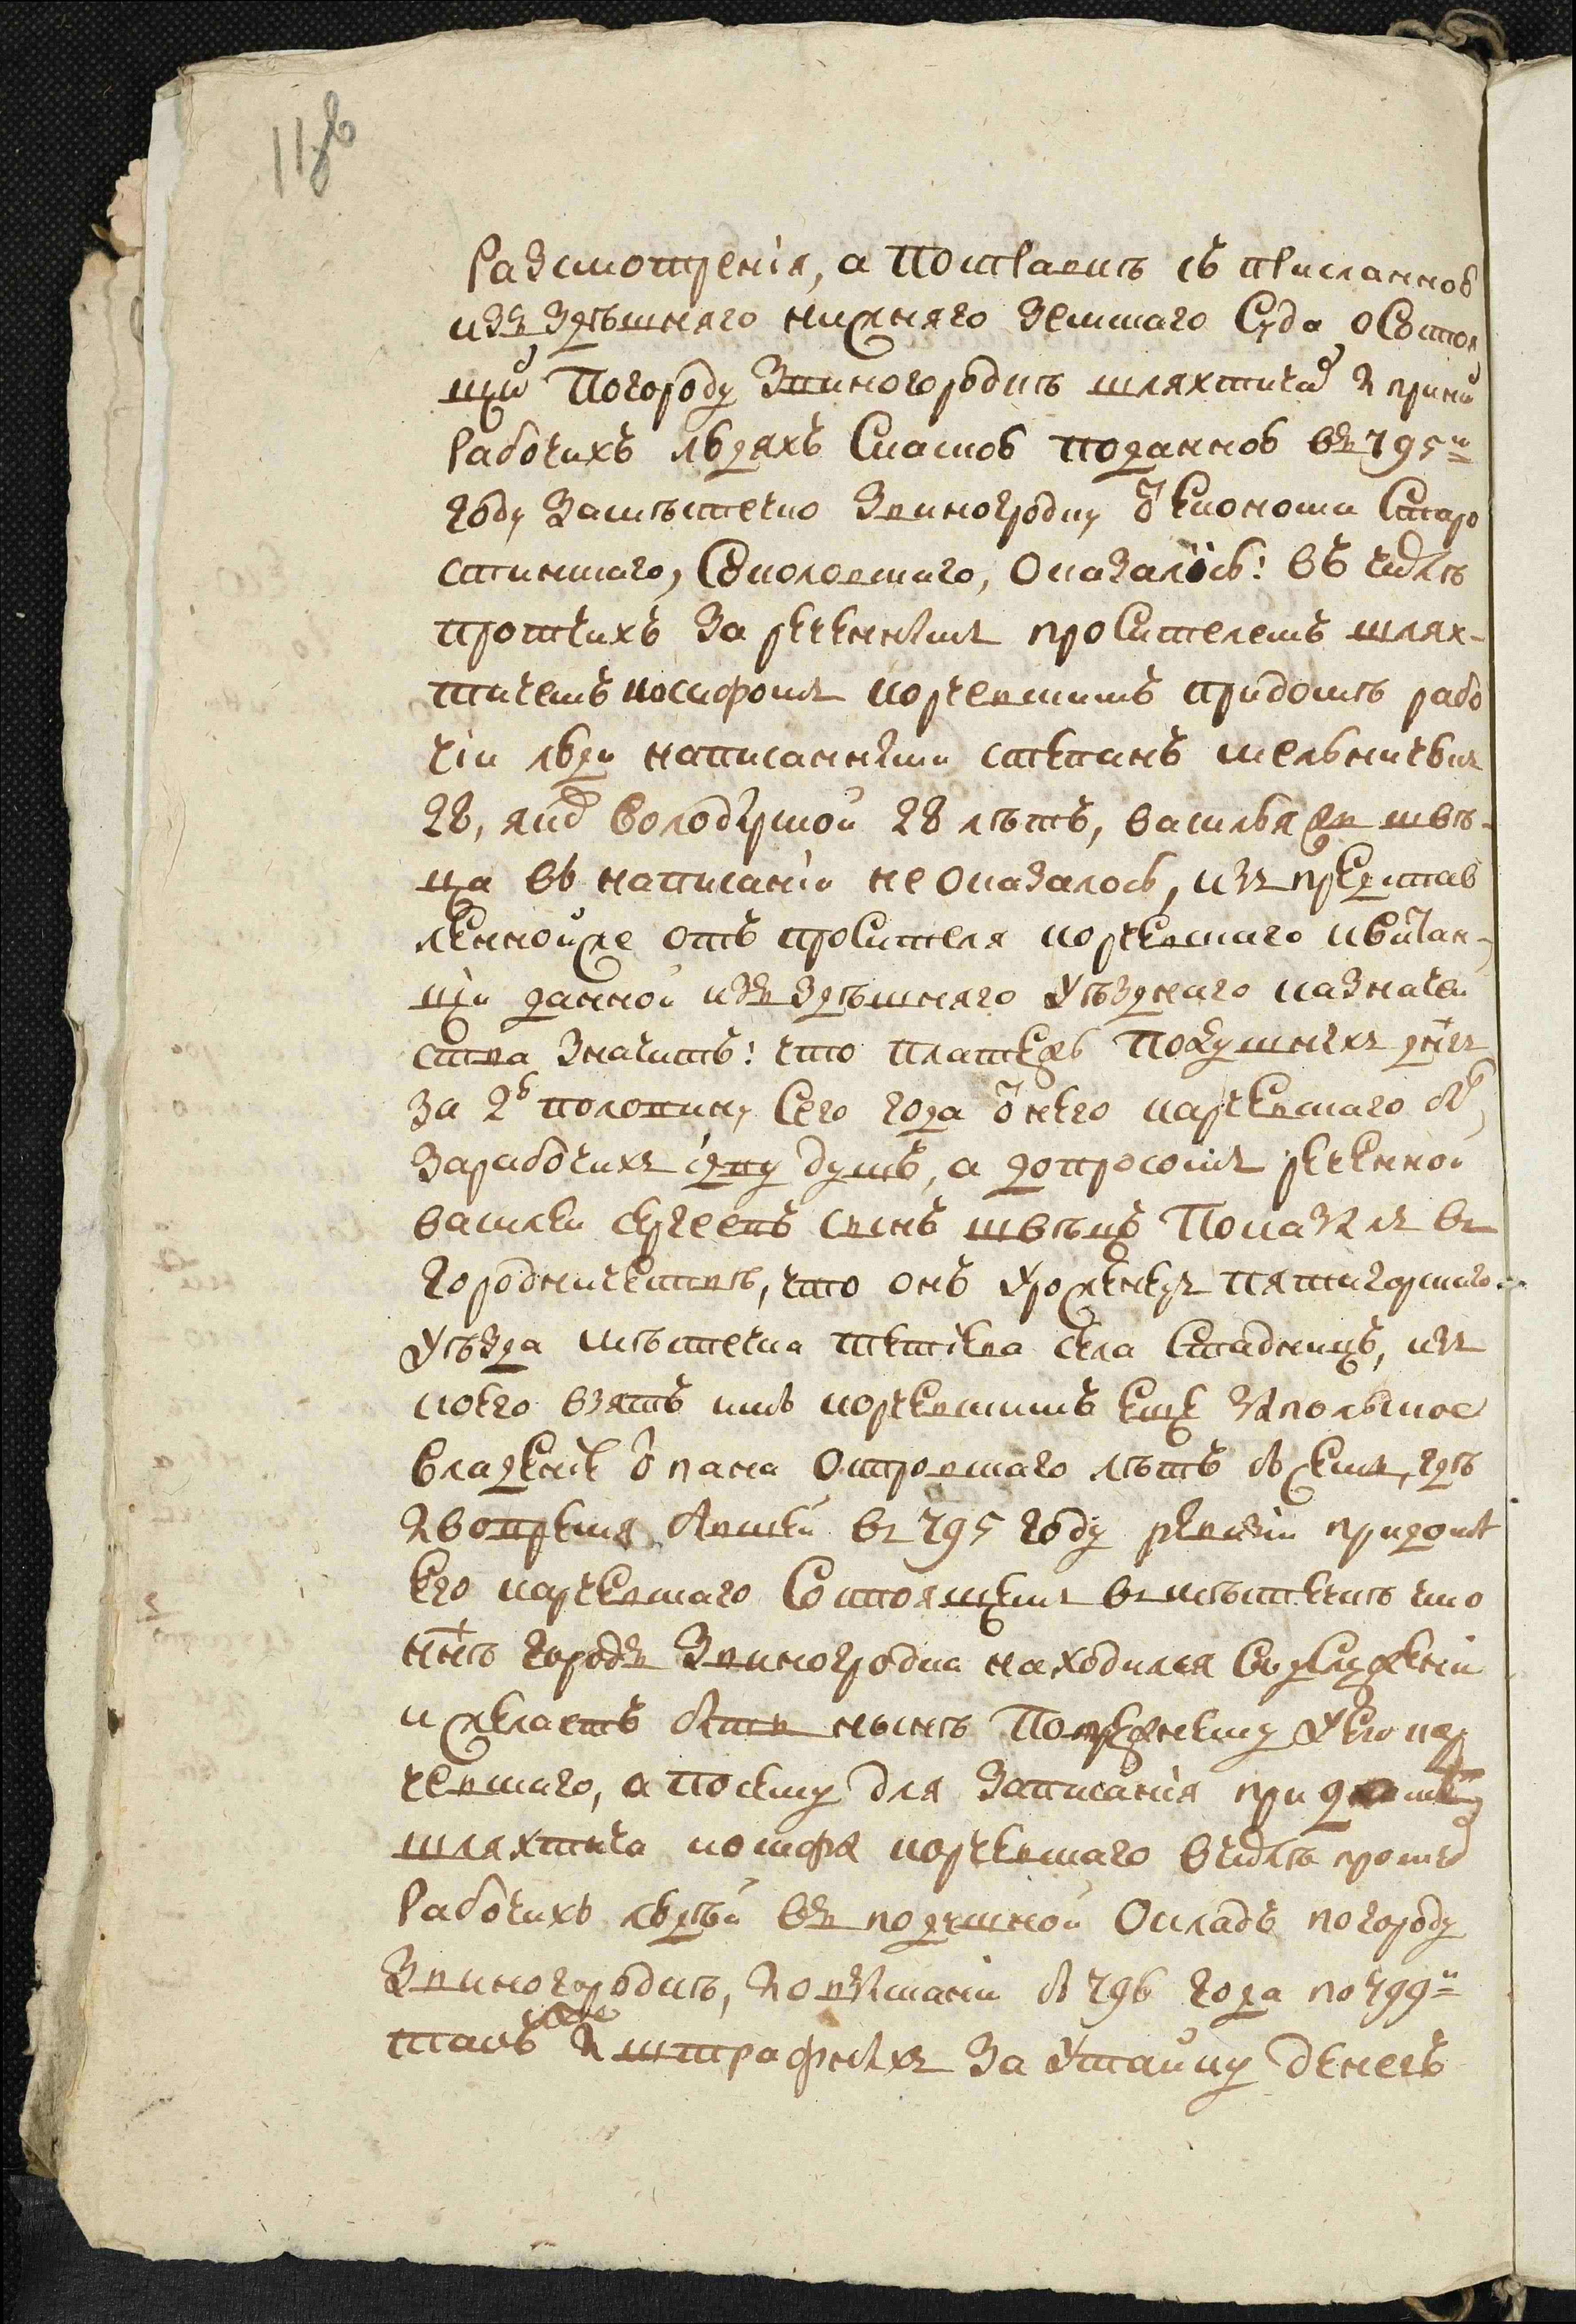 118
разсмотрения, а по справкѣ съ присланною
изъ здѣшняго нижняго земскаго суда о состоя
щих по городу Звиногородкѣ шляхтичах и при них
рабочихъ людяхъ скаскою поданною въ 795м
году за мѣстечко Звиногродку от економа старо
стинскаго, Соколовского, оказалось: въ числѣ
протчихъ за реченным просителемъ шлях-
тичемъ иосифом корчевскимъ при домѣ рабо
чии люди написанными степанъ мельниченко
28, яков володарской 28 лѣтъ, василья же швѣ-
ца въ написании не оказалось, из представ
ленной же отъ просителя корчевского квитан-
ции данной изъ здѣшняго уѣзднаго казначей
ства значитъ: что платежъ подушных денег
за 2ю половину сего года от него корчевского
за рабочих душъ, а допросом реченной
василей сергеевъ сынъ швѣцъ показал в
городничествѣ, что онъ уроженец пятигорского
уѣзда мѣстечка тетиева села стадницъ, из
коего взятъ имъ корчевскимъ еще в польское
владение от пана островского лѣтъ, гдѣ
и во время бывшей в 795 году ревизии при доме
его корчевского состоящем в мѣстечкѣ что
ннѣ городъ Звиногродка находился в услужении
и желаетъ быть нынѣ по прежнему у его кор
чевского, а по сему для записания при доме
шляхтича иосифа корчевского в числѣ протчих
рабочихъ людей въ подушной окладъ по городу
Звиногородкѣ, и о взыскании с 796 года по 799й
такъ же и штрафных за утайку денегъ